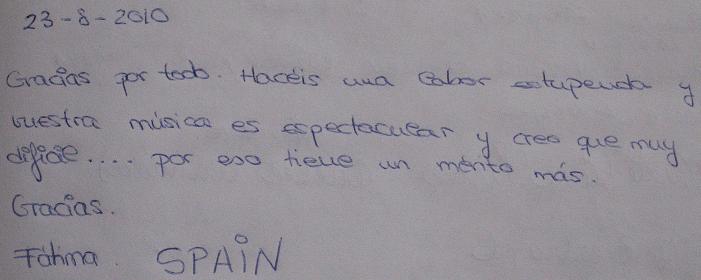 23-8-2010
Gracias por todo. Hacéis una labor estupenda y
vuestra música es espectacular y creo que muy
difícil.... por eso tiene un mérito más.
Gracias.
Fátima. SPAIN